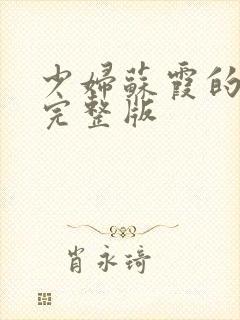 少婦蘇霞的
完整版
肖永琦